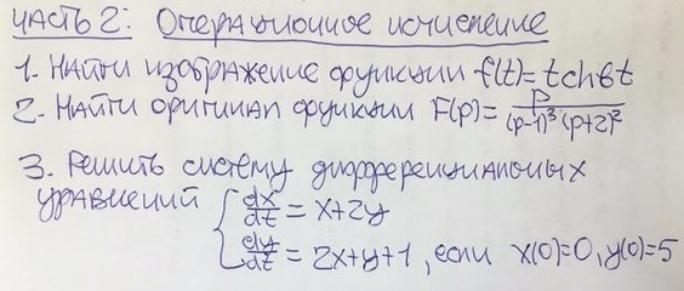 Часть 2: Операционное исчисление
1. Найти изображение функции f(t)= t ch 6t
2. Найти оригинал функции F(p)= p/((p-1)³(p+2)²)
3. Решить систему дифференциальных
уравнений { dx/dt = x+2y
dy/dt = 2x+y+1, если x(0)=0, y(0)=5